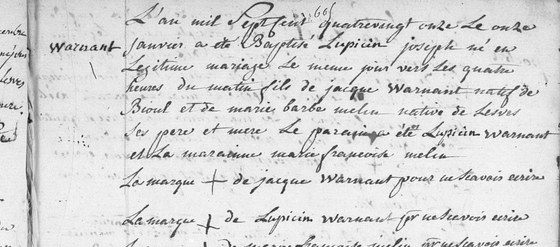 L'an mil Sept Cent quatrevingt onze Le onze
Warnant
janvier a eté Baptisé Lupicin joseph né en
Legitime mariage Le meme jour vers Les quatre
heures du matin fils de jacque Warnant natif de
Bioul et de marie barbe melin native de Lesves
Ses pere et mere Le parain a été Lupicin Warnant
et La maraine marie francoise melin
La marque + de jacque Warnant pour ne scavoir ecrire
La marque + de Lupicin Warnant pr ne scavoir ecrire